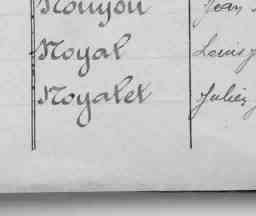 Nouyou Jean
Noyal Louis J
Noyalet Julien